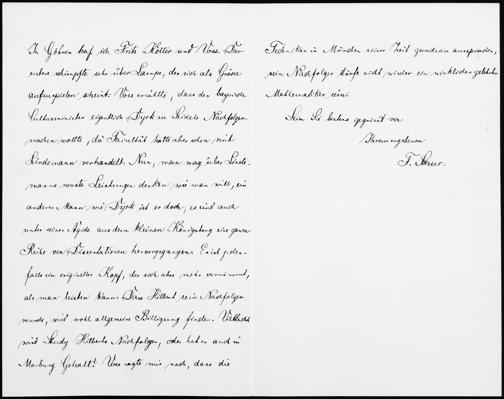 In Göhren traf ich Fritz Kötter und Voss. Der
erstere schimpfte sehr über Lampe, der sich als Grösse
aufzuspielen scheint. Voss erzählte, dass der bayrische
Cultusminister eigentlich Dyck zu Seidels Nachfolger
machen wollte, die Facultät hatte aber schon mit
Lindemann verhandelt. Nun, man mag über Linde-
manns neuste Leistungen denken wie man will, ein
anderer Mann wie Dyck ist er doch, es sind auch
unter seiner Ägide aus dem kleinen Königsberg eine ganze
Reihe von Dissertationen hervorgegangen. Er ist jeden-
falls ein origineller Kopf, der sich aber mehr vornimmt,
als man leisten kann. Dass Hilbert sein Nachfolger
wurde, wird wohl allgemeine Billigung finden. Vielleicht
wird Study Hilberts Nachfolger, oder hat er auch in
Marburg Gehalt? Voss sagte mir noch, dass die
Techniker in München seiner Zeit geradezu aussprachen,
sein Nachfolger dürfe nicht wieder ein wirklicher gelehrter
Mathematiker sein.
Sein Sie bestens gegrüsst von
Ihrem ergebenen
F. Schur.